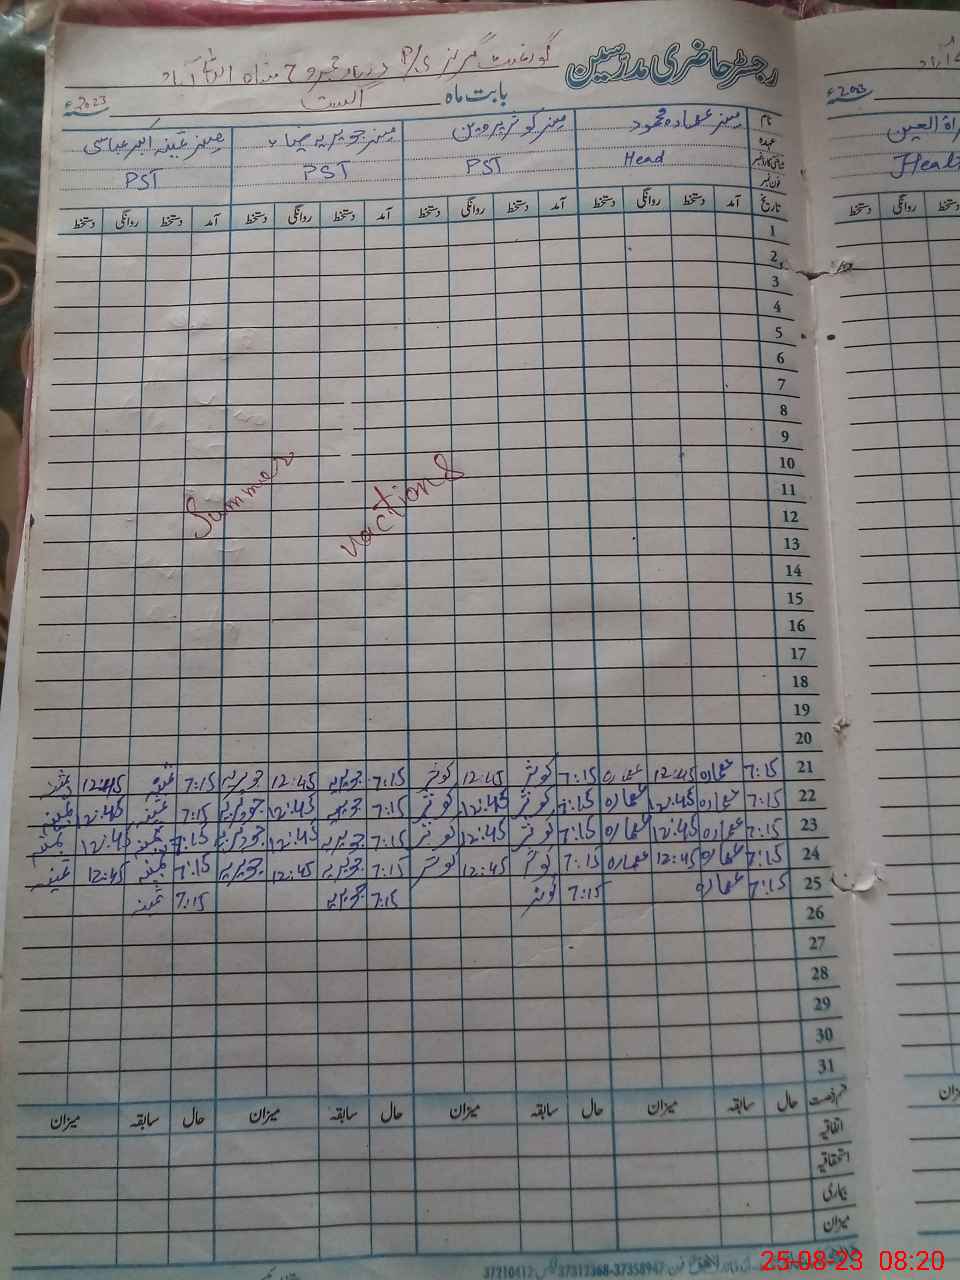 رجسٹر حاضری مدرسین گورنمنٹ گرلز P/S
بابت ماہ اگست 2023ء
نام مسز عمارہ محمود مسز کوثر پروین مسز جویریہ
عہدہ Head PST PST PST
فون نمبر
تاریخ آمد دستخط روانگی دستخط آمد دستخط روانگی دستخط آمد دستخط روانگی دستخط آمد دستخط روانگی دستخط
1
2
3
4
5
6
7
8
9
10
11
12
13
14
15
16
17
18
19
20
Summer vactions
21 7:15 عمارہ 12:45 عمارہ 7:15 کوثر 12:45 کوثر 7:15 جویریہ 12:45 جویریہ 7:15 12:45
22 7:15 عمارہ 12:45 عمارہ 7:15 کوثر 12:45 کوثر 7:15 جویریہ 12:45 جویریہ 7:15 12:45
23 7:15 عمارہ 12:45 عمارہ 7:15 کوثر 12:45 کوثر 7:15 جویریہ 12:45 جویریہ 7:15 12:45
24 7:15 عمارہ 12:45 عمارہ 7:15 کوثر 12:45 کوثر 7:15 جویریہ 12:45 جویریہ 7:15 12:45
25 7:15 عمارہ 7:15 کوثر 7:15 جویریہ 7:15
26
27
28
29
30
31
قسم رخصت حال سابقہ میزان حال سابقہ میزان حال سابقہ میزان حال سابقہ میزان
اتفاقیہ
استحقاقیہ
بیماری
میزان
37210412 37312368-37358947
2023ء
دستخط روانگی دستخط
25-08-23 08:20